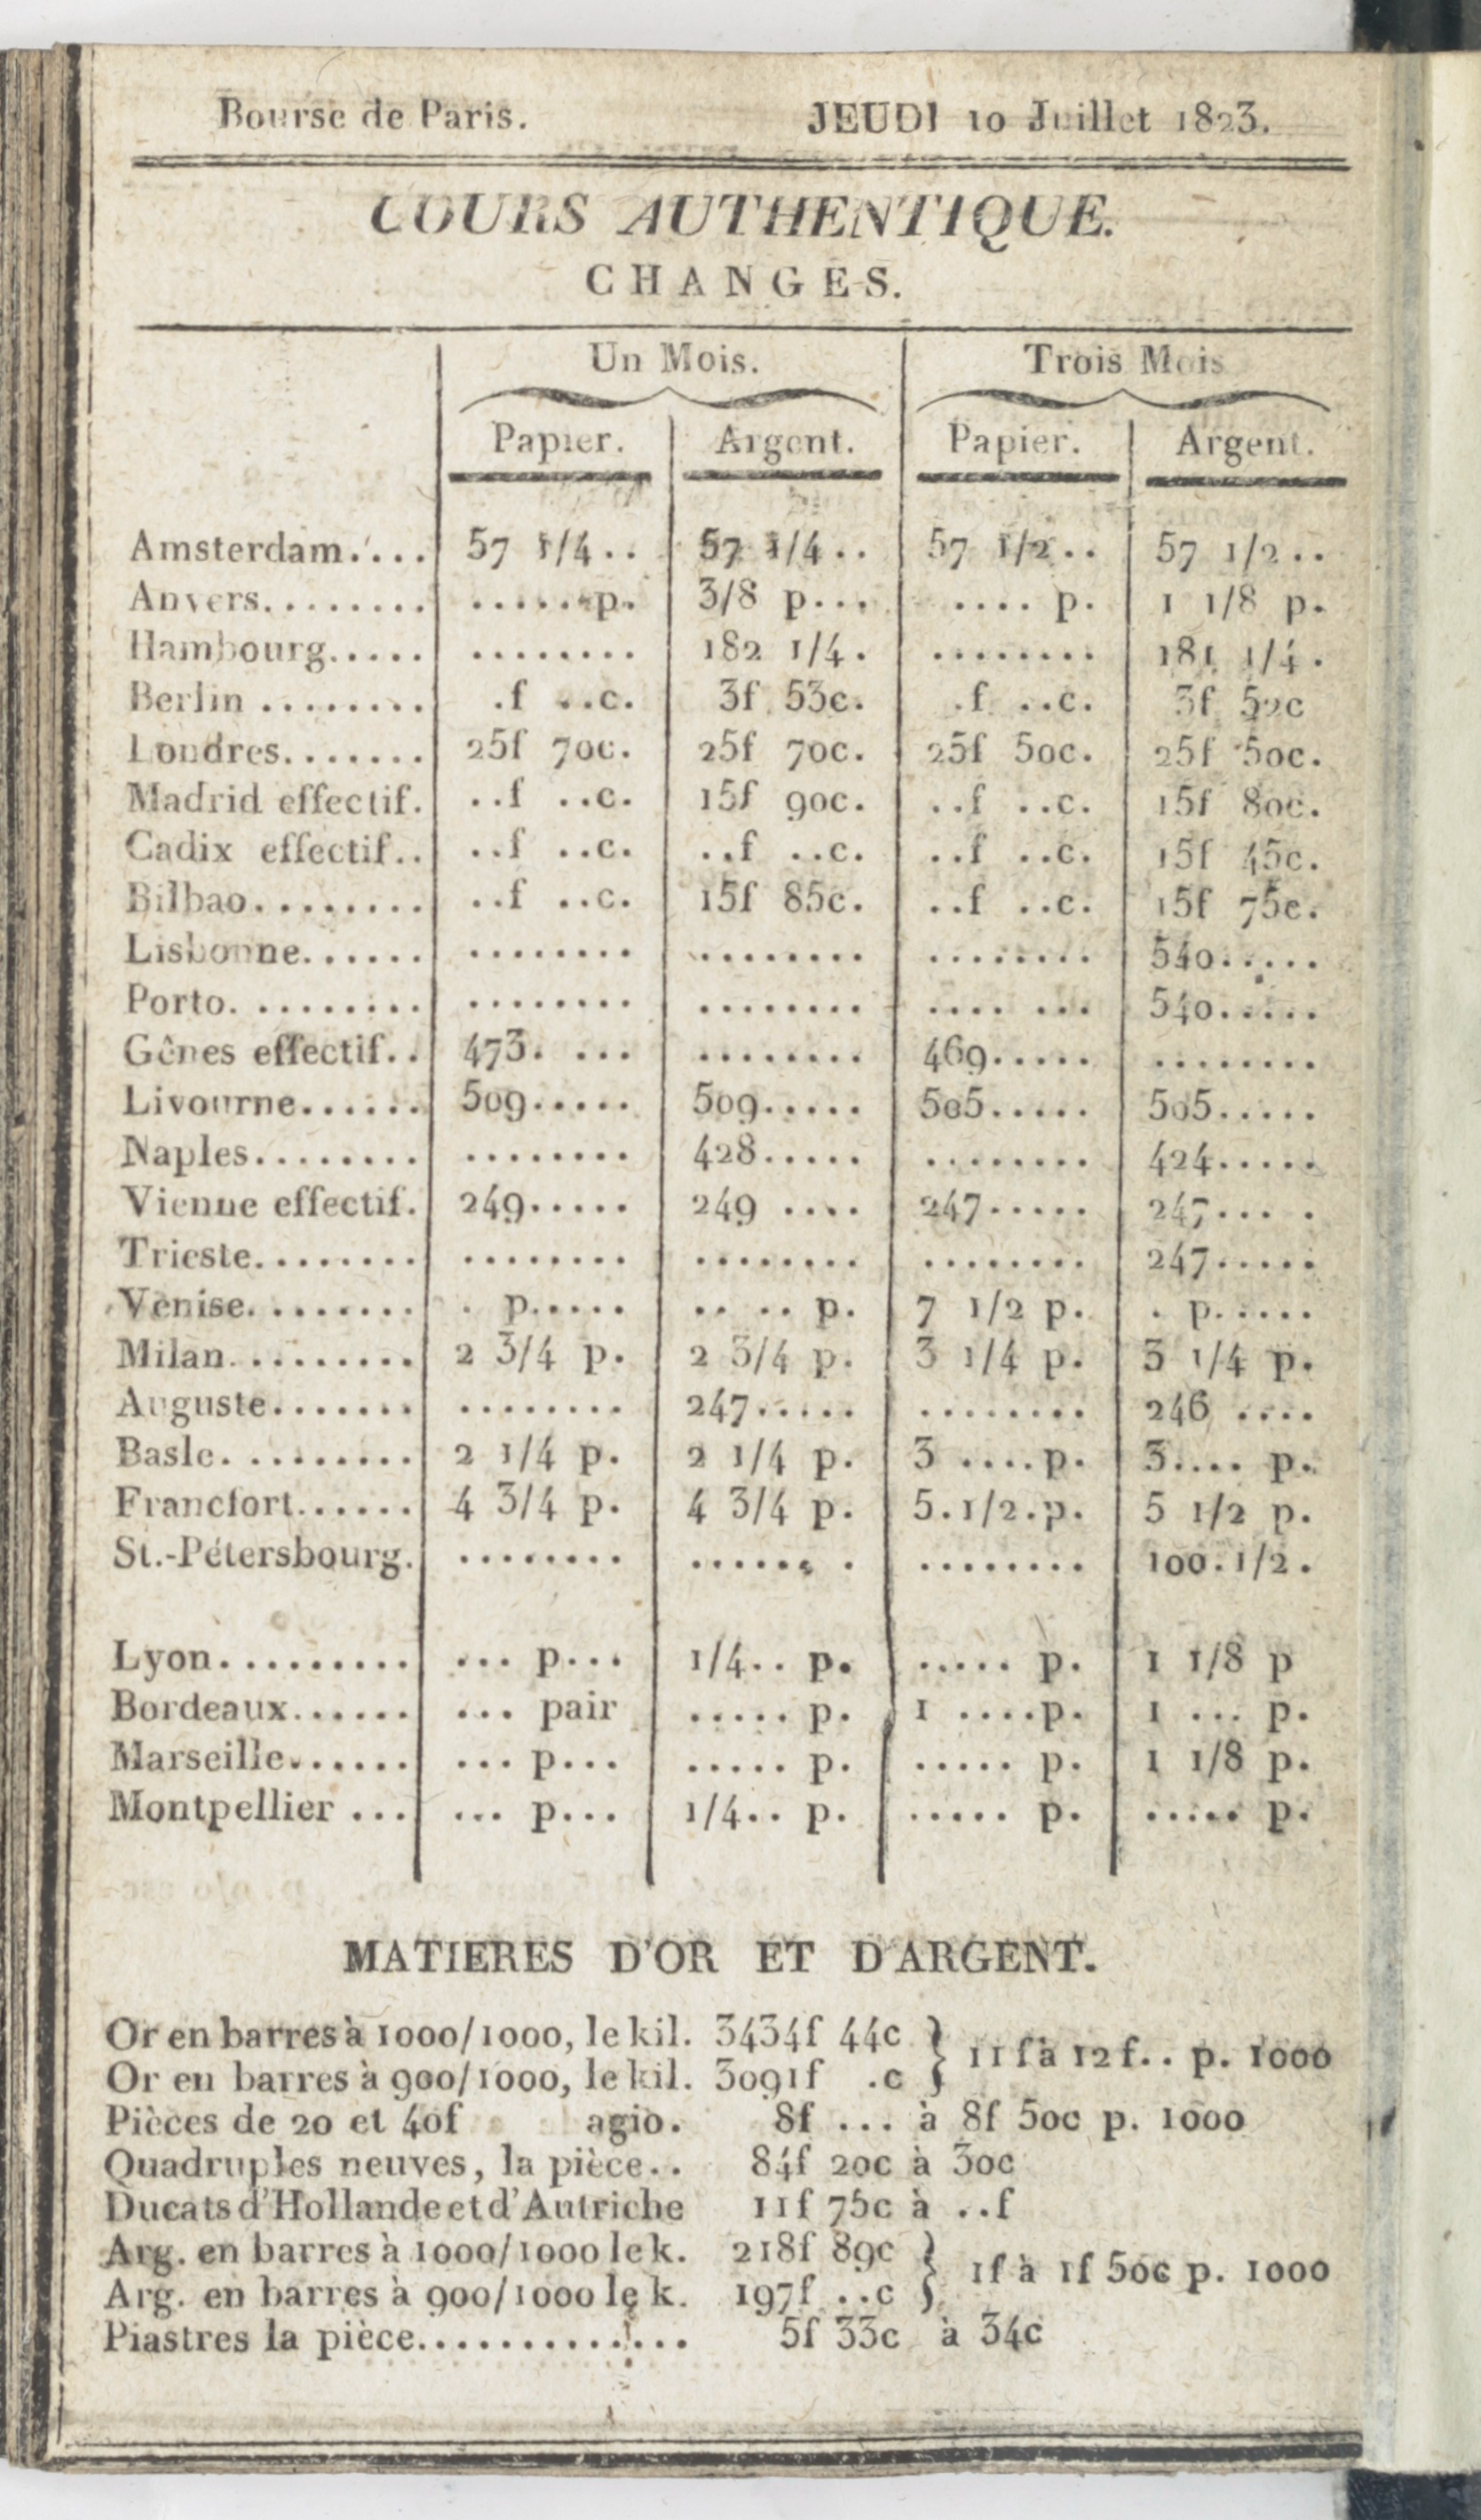 Bourse de Paris. JEUDI 10 Juillet 1823.
COURS AUTHENTIQUE.
CHANGES.
Un Mois. Trois Mois
Papier. Argent. Papier. Argent.
Amsterdam..... 57 1/4.. 57 1/4.. 57 1/2.. 57 1/2..
Anvers........ ......p. 3/8 p... .... p. 1 1/8 p.
Hambourg..... ........ 182 1/4. ........ 181 1/4.
Berlin ........ .f ..c. 3f 53c. .f ..c. 3f 52c
Londres....... 25f 70c. 25f 70c. 25f 50c. 25f 50c.
Madrid effectif. ..f ..c. 15f 90c. ..f ..c. 15f 80c.
Cadix effectif.. ..f ..c. ..f ..c. ..f ..c. 15f 45c.
Bilbao........ ..f ..c. 15f 85c. ..f ..c. 15f 75c.
Lisbonne...... ........ ........ ........ 540.....
Porto. ........ ........ ........ .... ... 540.....
Gênes effectif.. 473. ... ........ 469..... ........
Livourne...... 509..... 509..... 505..... 505.....
Naples........ ........ 428..... ........ 424.....
Vienne effectif. 249..... 249 .... 247..... 247... .
Trieste........ ........ ........ ........ 247.....
Venise........ . p..... .. .. p. 7 1/2 p. . p.....
Milan......... 2 3/4 p. 2 3/4 p. 3 1/4 p. 3 1/4 p.
Auguste....... ........ 247..... ........ 246 ....
Basle. ........ 2 1/4 p. 2 1/4 p. 3 ....p. 3.... p.
Francfort...... 4 3/4 p. 4 3/4 p. 5.1/2.p. 5 1/2 p.
St.-Pétersbourg. ........ ...... . ........ 100.1/2.
Lyon......... ... p... 1/4.. p. ..... p. 1 1/8 p
Bordeaux...... ... pair ..... p. 1 ....p. 1 ... p.
Marseille...... ... p... ..... p. ..... p. 1 1/8 p.
Montpellier ... ... p... 1/4.. p. ..... p. ..... p.
MATIERES D'OR ET D'ARGENT.
Or en barres à 1000/1000, le kil. 3434f 44c
11f à 12f.. p. 1000
Or en barres à 900/1000, le kil. 3091f .c
Pièces de 20 et 40f agio. 8f ... à 8f 50c p. 1000
Quadruples neuves, la pièce.. 84f 20c à 30c
Ducats d'Hollande et d'Autriche 11f 75c à ..f
Arg. en barres à 1000/1000 le k. 218f 89c
1f à 1f 50c p. 1000
Arg. en barres à 900/1000 le k. 197f ..c
Piastres la pièce.............. 5f 33c à 34c